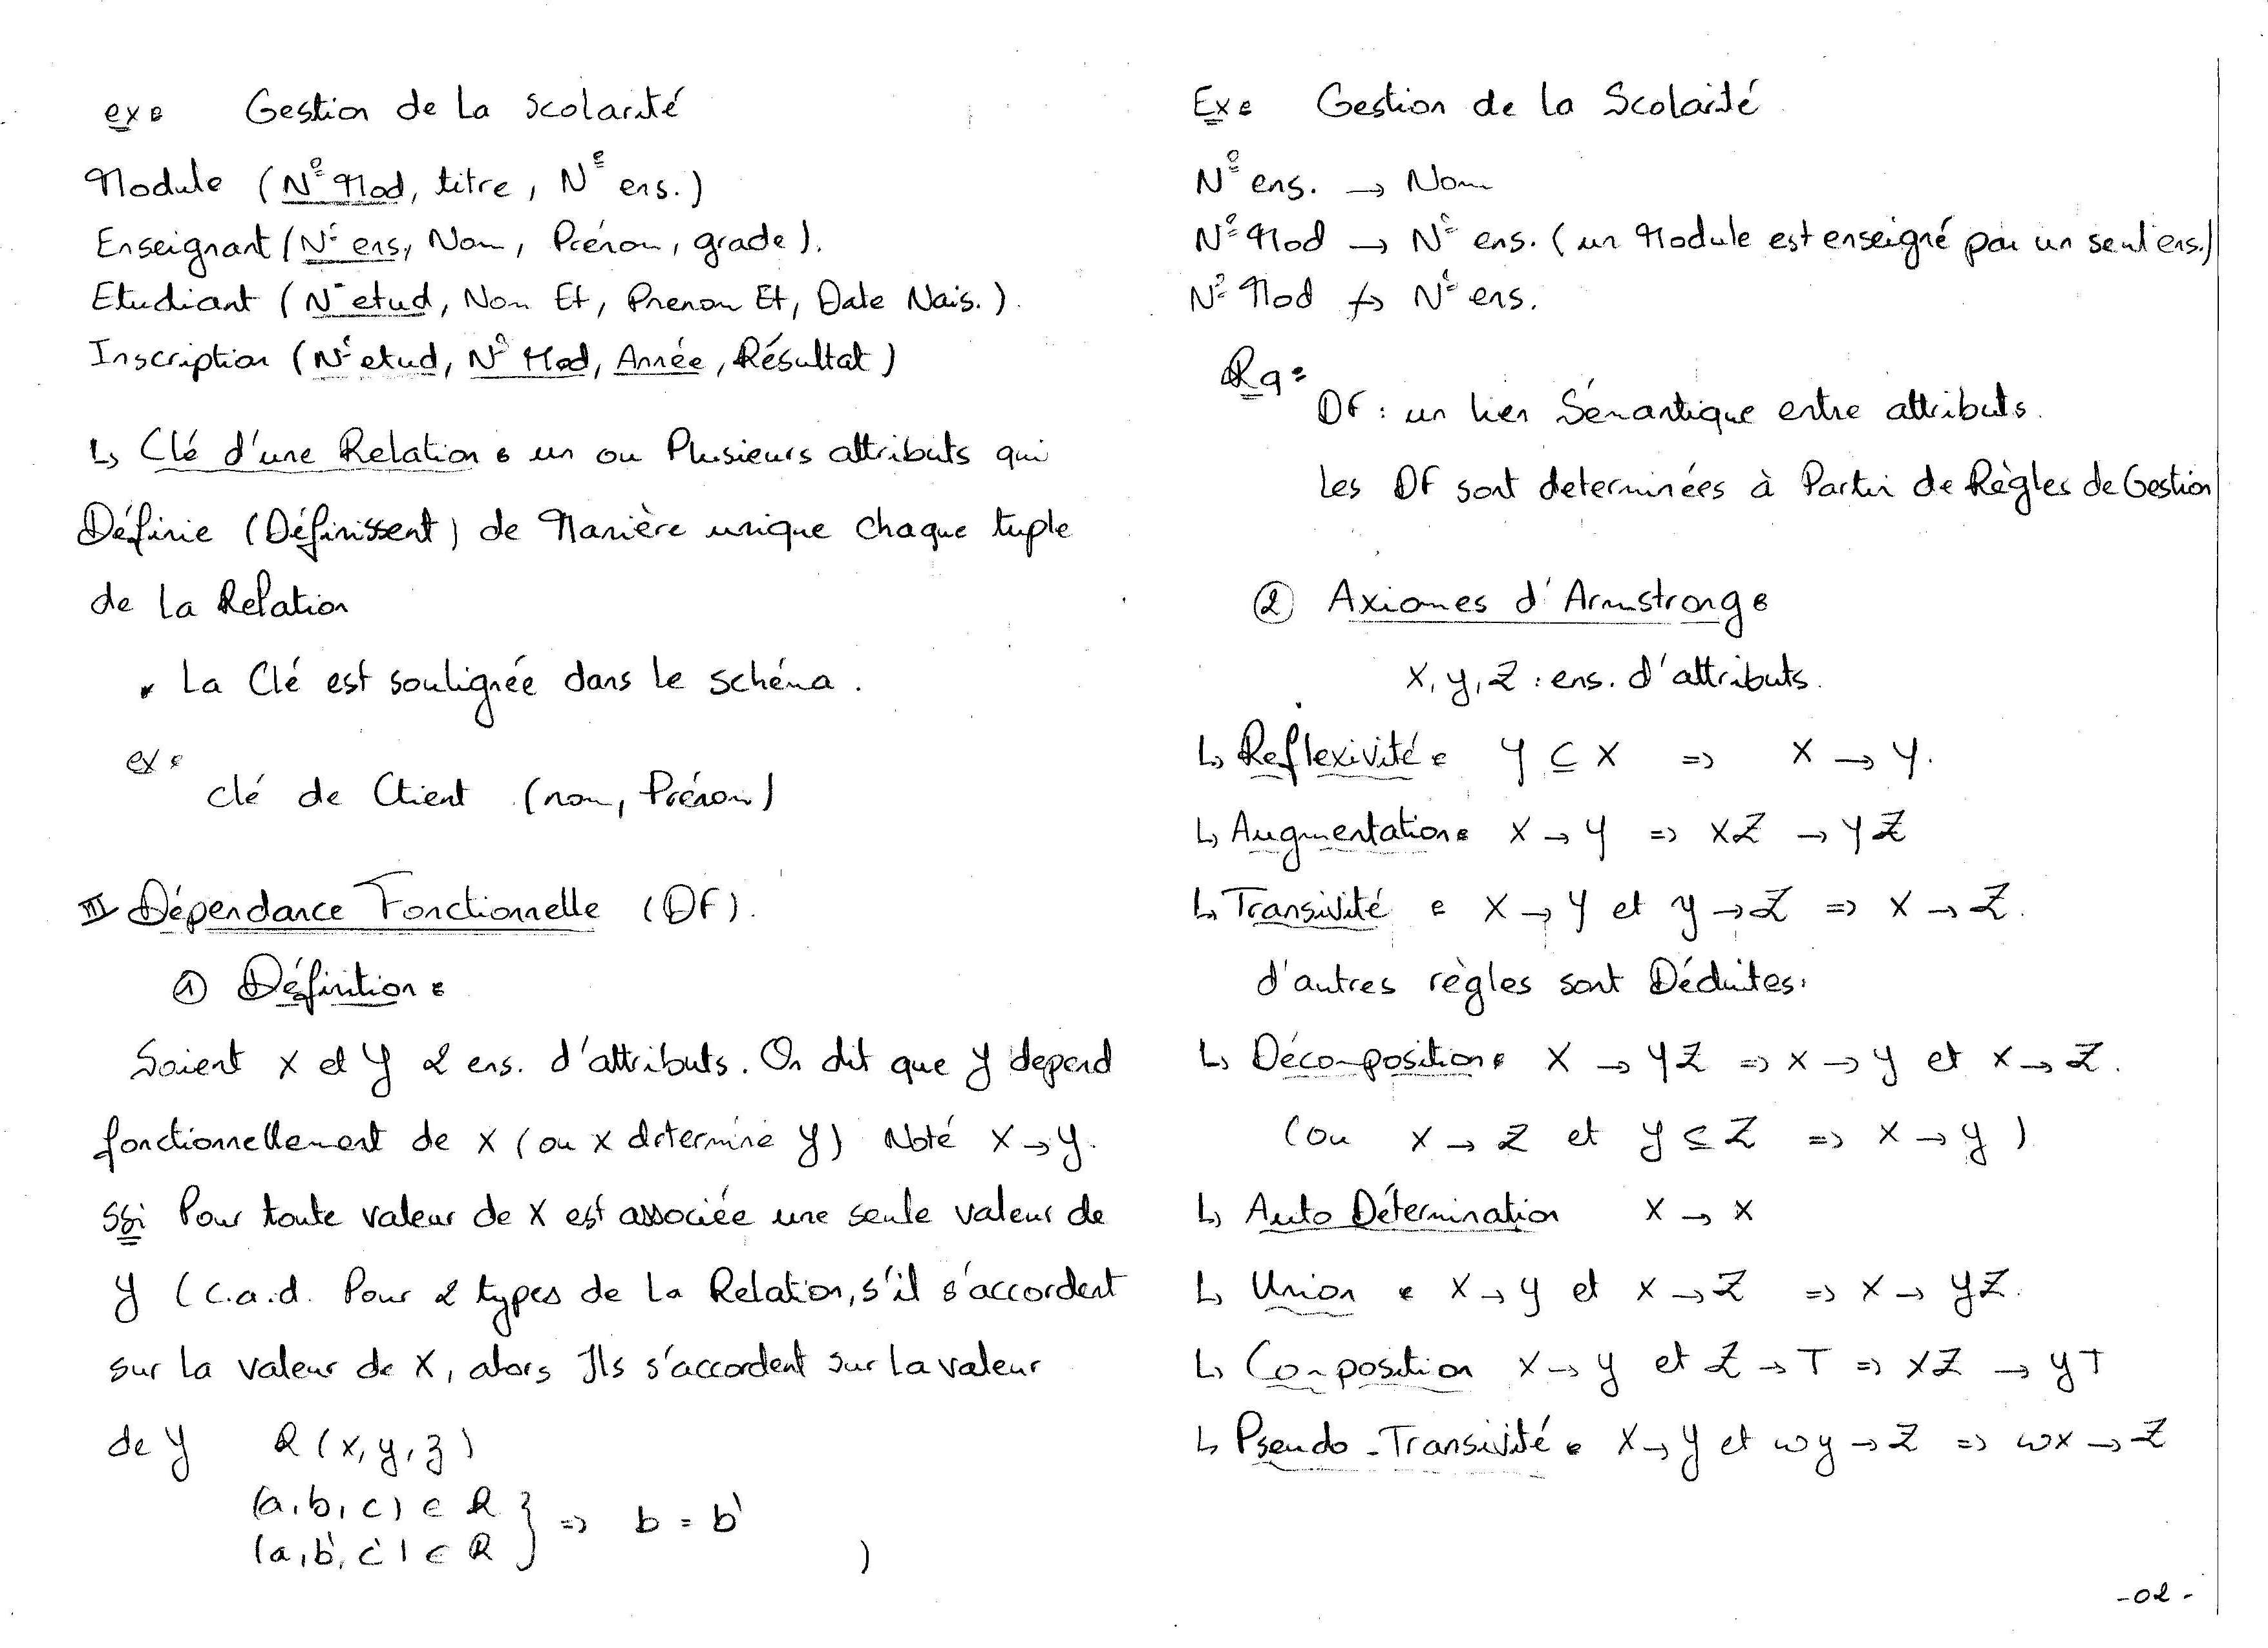 ex : Gestion de La scolarité
Module (N° Mod, titre, N° ens.)
Enseignant (N° ens, Nom, Prénom, grade).
Etudiant (N° etud, Nom Et, Prenom Et, Date Nais.).
Inscription (N° etud, N° Mod, Année, Résultat)
↳ Clé d'une Relation : un ou Plusieurs attributs qui
Définie (Définissent) de Manière unique chaque tuple
de La Relation
• La Clé est soulignée dans le schéma.
ex :
clé de Client (nom, Prénom)
III Dépendance Fonctionnelle (DF).
① Définition :
Soient X et Y 2 ens. d'attributs. On dit que Y depend
fonctionnellement de X (ou X determine Y) Noté X → Y.
ssi Pour toute valeur de X est associée une seule valeur de
Y (c.a.d. Pour 2 types de La Relation, s'il s'accordent
sur La valeur de X, alors Ils s'accordent sur La valeur
de Y R (x, y, z)
(a, b, c) ∈ R
(a, b', c') ∈ R } => b = b'
)
Ex : Gestion de La Scolarité
N° ens. → Nom
N° Mod → N° ens. (un Module est enseigné par un seul ens.)
N° Mod ↛ N° ens.
Rq :
DF : un lien Sémantique entre attributs.
Les DF sont determinées à Partir de Règles de Gestion
② Axiomes d'Armstrong :
X, Y, Z : ens. d'attributs.
↳ Reflexivité : Y ⊆ X => X → Y.
↳ Augmentation : X → Y => XZ → YZ
↳ Transivité : X → Y et Y → Z => X → Z.
d'autres règles sont Déduites :
↳ Décomposition : X → YZ => X → Y et X → Z.
(ou X → Z et Y ⊆ Z => X → Y)
↳ Auto Détermination X → X
↳ Union : X → Y et X → Z => X → YZ.
↳ Composition X → Y et Z → T => XZ → YT
↳ Pseudo-Transivité : X → Y et WY → Z => WX → Z
-02-